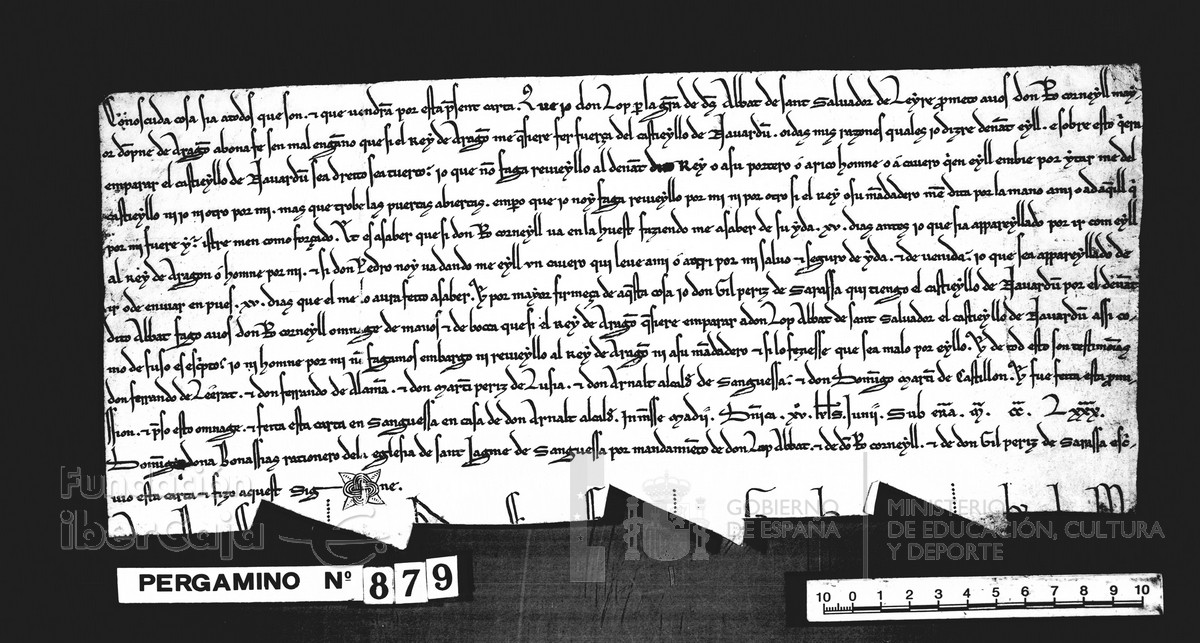 Conoscuda cosa sia atodos que son. & que vendran por esta psent carta. Que io don Lop p la gra de ds Abbat de sant Salvador de Leyre prometo avos don Ro corneyll may
or dompne de Aragon abona fe sen mal engano que si el Rey de Aragon me qsiere fer fuerça del castieyllo de Navardu. oidas mis razones quales io dizre denat eyll. e sobre esto qera
emparar el castieyllo de Navardu sea dreito sea tuerto: io que no faga reuueyllo al denat Rey o asu portero o arico homne o a cavero qen eyll embie por ytar me del
castieyllo ni io ni otro por mi. mas que trobe las puertas abiertas. empo que io noy faga reuueyllo por mi ni por otro si el rey o su madadero me dita por la mano ami o adaqll q
por mi fuere y: istre men como forçado. Et es asaber que si don Ro corneyll va en la huest faziendo me asaber de su yda .xv. dias antes io que sia appareyllado por ir com eyll
al Rey de Aragon o homne por mi. & si don Pedro noy va dando me eyll vn cavero qui leve ami o a otri por mi salvo & seguro de yda. & de venida: io que sea appareyllado de
ir o de enviar en pues .xv. dias que el me lo aura feito asaber. Y por mayor firmeça de aqsta cosa io don Gil periz de Sarassa qui tiengo el castieyllo de Navardu por el denat
dito Abbat fago avos don Ro corneyll omnage de manos & de bocca que si el Rey de Aragon qsiere emparar a don Lop Abbat de sant Salvador el castieyllo de Navardu assi co-
mo de suso es escpto: io ni homne por mi nol fagamos embargo ni reuueyllo al Rey de Aragon ni asu madadero & si lo feziesse que sea malo por eyllo. Y de tod esto son testimonias
don ferrando de Lerat. & don ferrando de Alama. & don marti periz de Lusia. & don Arnalt alcald de Sanguessa: & don Domigo marti de Castillon. Y fue feita esta pmi-
ssion. & pso esto omnage. & feita esta carta en Sanguessa en casa de don Arnalt alcald. In mense Madii. Dnica .xv. kls. Junii. Sub era. M. CC. Lxxx.
Domigo dona Bonassias racionero dela eglesia de sant Jagme de Sanguessa por mandamieto de don Lop Abbat. & de do Ro corneyll. & de don Gil periz de Sarassa esc-
vivo esta carta & fizo aquest Sig ne.
Fundación
iberCaja
GOBIERNO
DE ESPAÑA
MINISTERIO
DE EDUCACIÓN, CULTURA
Y DEPORTE
PERGAMINO Nº 879
10 0 1 2 3 4 5 6 7 8 9 10